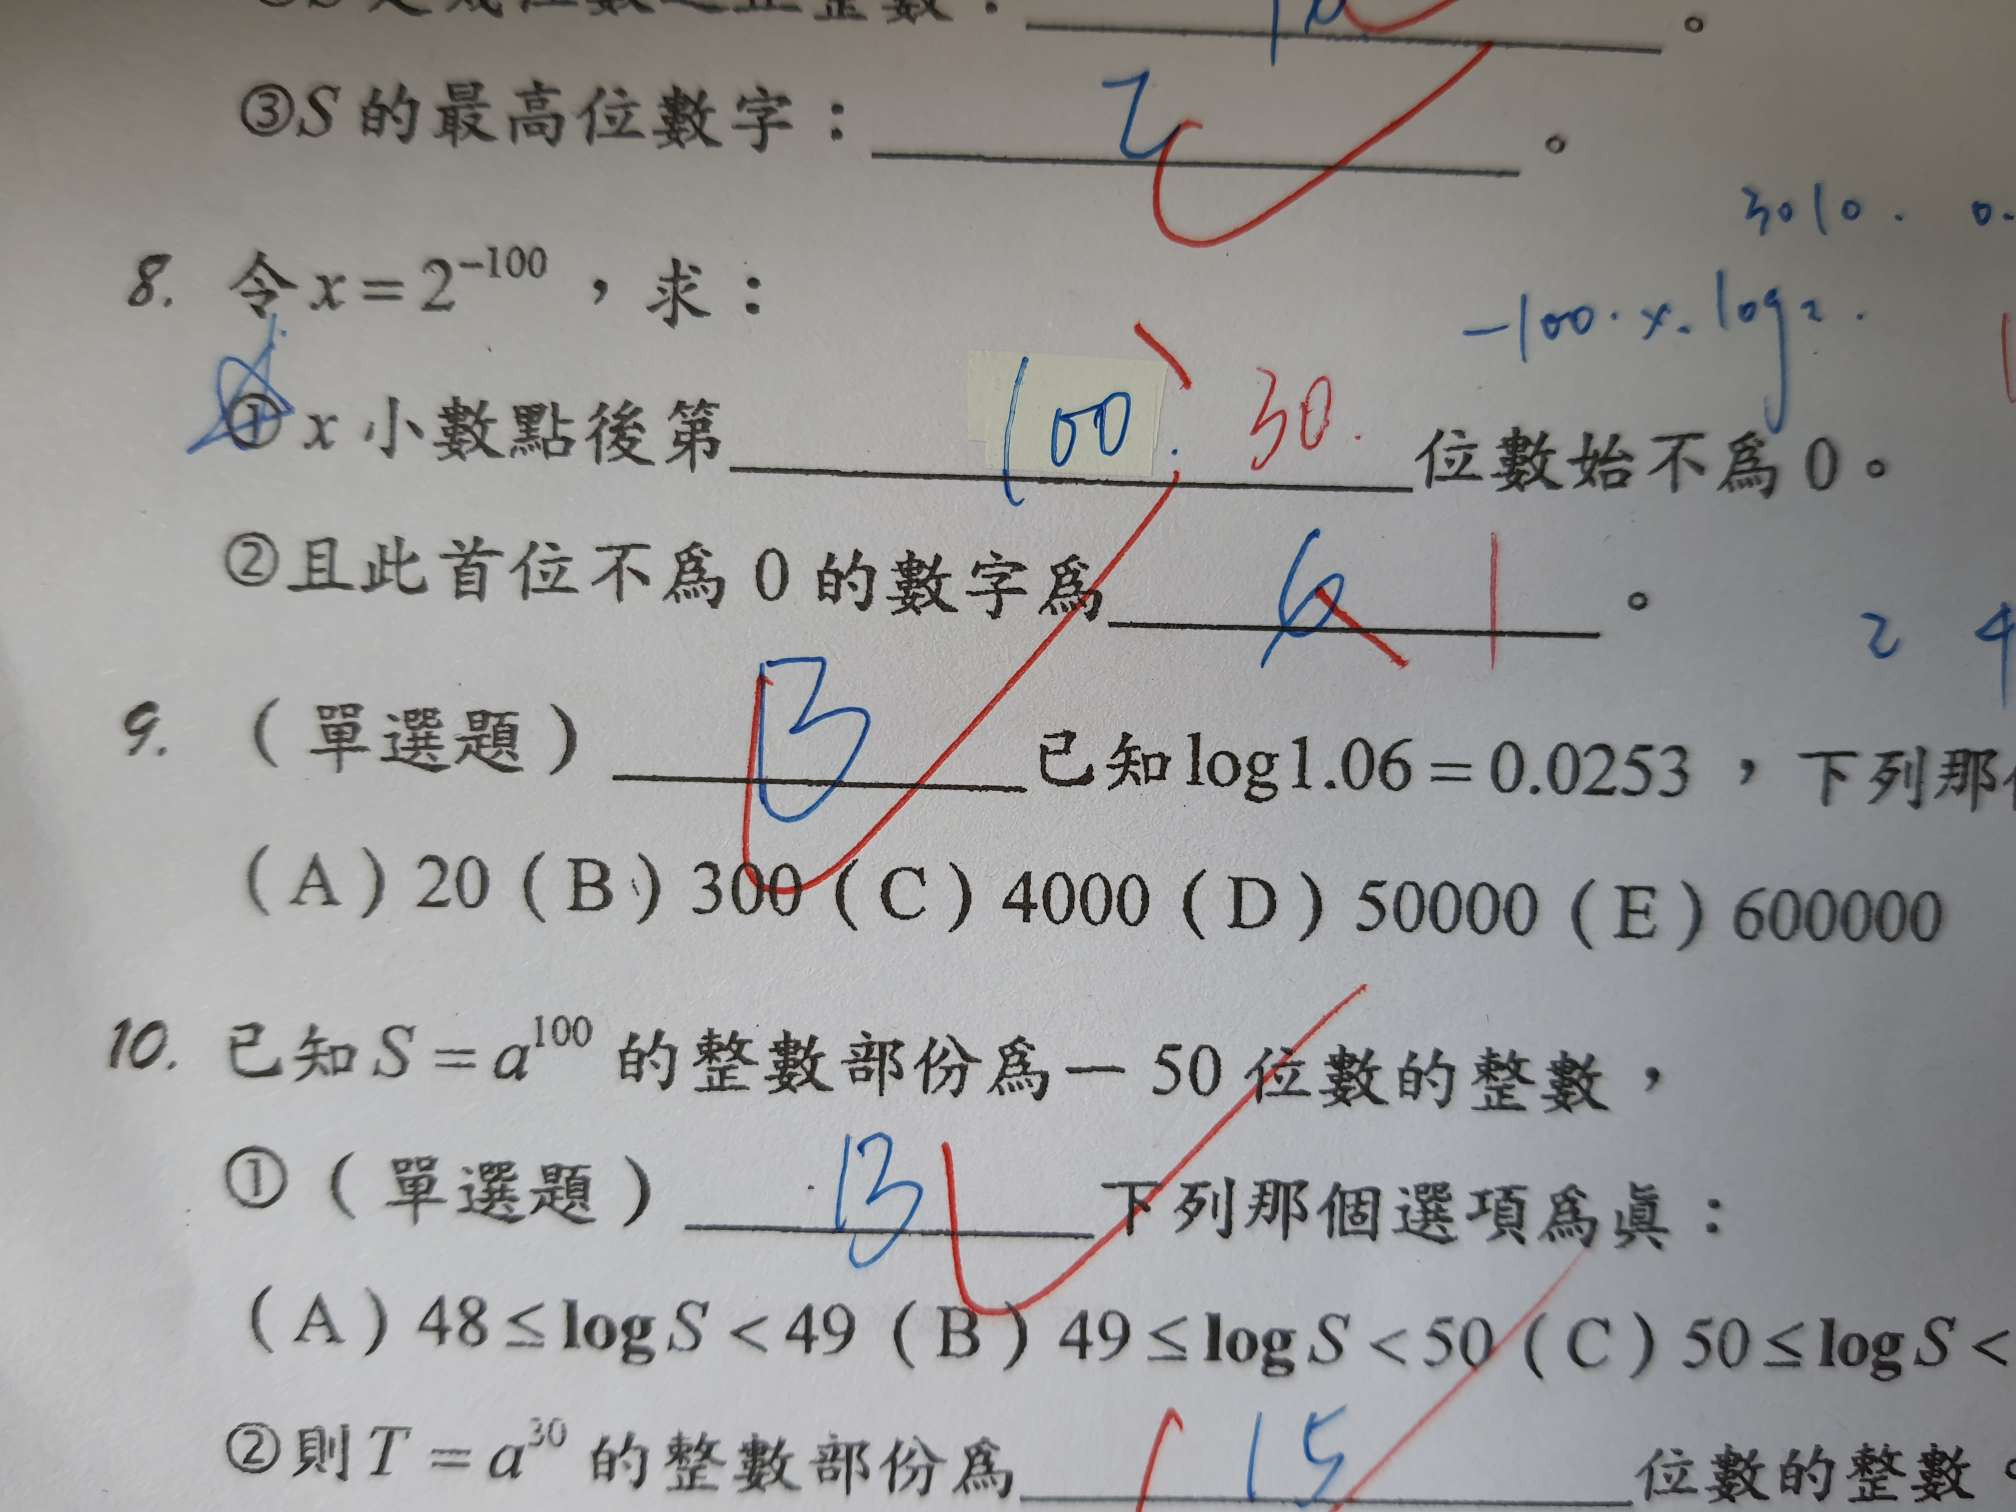 ③S的最高位數字： 2 。
3010. 0.
8. 令x=2⁻¹⁰⁰，求：
-100. x. log2.
①x小數點後第 100. 30. 位數始不為0。
②且此首位不為0的數字為 6 1 。
2 4
9. （單選題） B 已知log1.06=0.0253，下列那
（A）20（B）300（C）4000（D）50000（E）600000
10. 已知S=a¹⁰⁰的整數部份為一50位數的整數，
①（單選題） B 下列那個選項為真：
（A）48≤logS<49（B）49≤logS<50（C）50≤logS<
②則T=a³⁰的整數部份為 15 位數的整數。